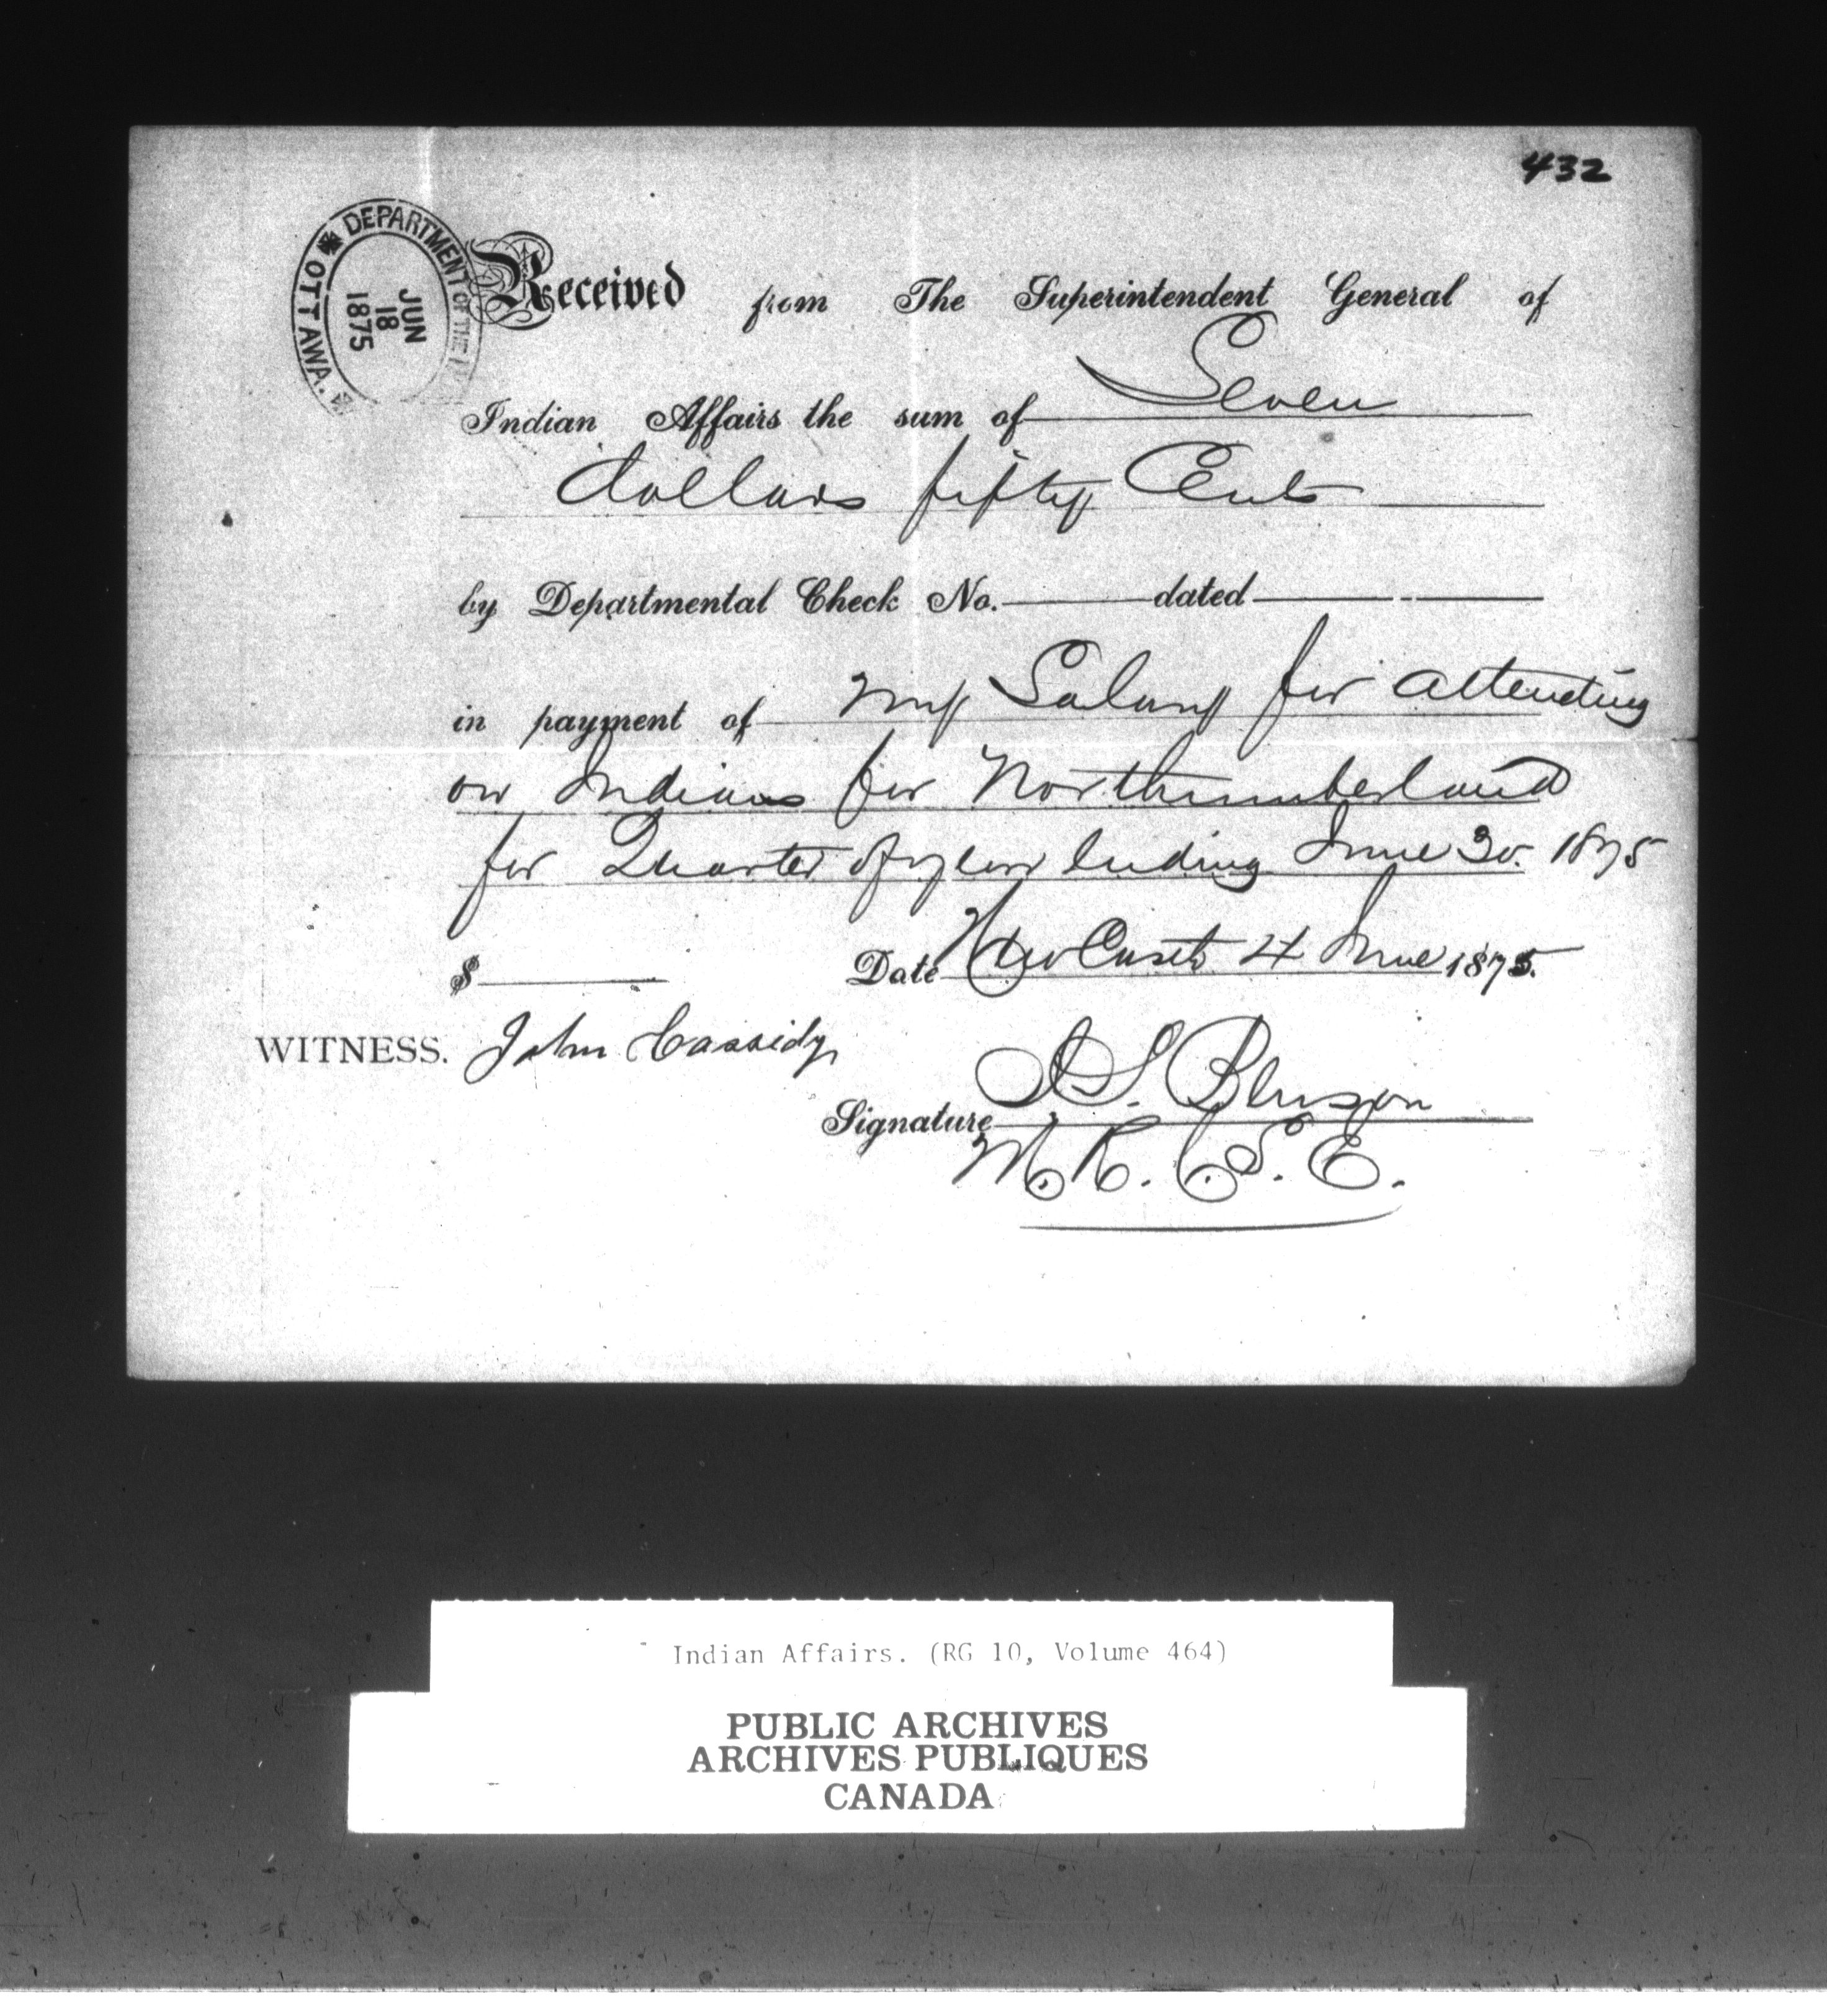 432
DEPARTMENT OF THE
OTTAWA.
JUN
18
1875
Received from The Superintendent General of
Indian Affairs the sum of Seven
dollars fifty Cents
by Departmental Check No. dated
in payment of my Salary for attending
on Indians for Northumberland
for Quarter of year Ending June 30. 1875
$ Date New Castle 4 June 1875.
WITNESS. John Cassidy
Signature S. Benson
M. R. C. S. E.
Indian Affairs. (RG 10, Volume 464)
PUBLIC ARCHIVES
ARCHIVES PUBLIQUES
CANADA